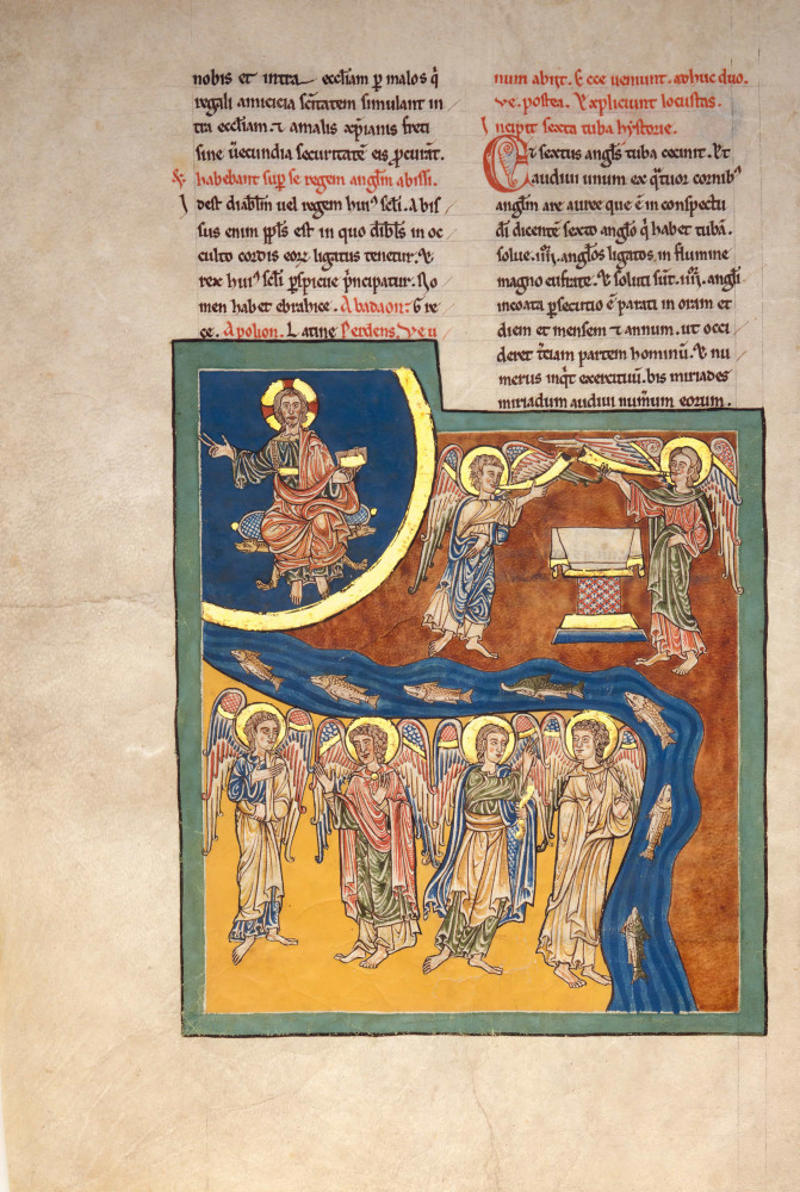 nobis et intra ecclīam p̱ malos q̄
regali amicicia sc̄itatem simulant in
tra eccl̄iam. ⁊ a malis xp̄ianis freti
sine ūecundia securitatē eis ꝓcurāt.
& habebant sup̱ se regem angl̄m abissi.
Id est diabl̄m uel regem huiꝰ scl̄i. Abis
sus enim ppl̄s est in quo dibl̄s in oc
culto cordis eoꝝ ligatus tenetur. &
rex huiꝰ scl̄i p̱spicue p̄ncipatur. No
men habet ebrahice. Abadaon. Gre
ce. Apolion. Latine Perdens. Ve u
num abiit. & ecce ueniunt. adhuc duo.
ve. postea. Expliciunt locustas.
Incipit sexta tuba hystorie.
Et sextus angl̄s tuba cecinit. Et
audiui unum ex q̄tuor cornibꝰ
angl̄m are auree que ē in conspectu
dī dicentē sexto angl̄o q̄ habet tubā.
solue .iiiiᵒʳ. angl̄os ligatos in flumine
magno eufrate. & soluti sūt .iiiiᵒʳ. angl̄i
incoata p̱secutio ē parati in oram et
diem et mensem ⁊ annum. ut occi
deret t̄ciam partem hominū. & nu
merus inq̄t exercituū. bis miriades
miriadum audiui num̄um eorum.